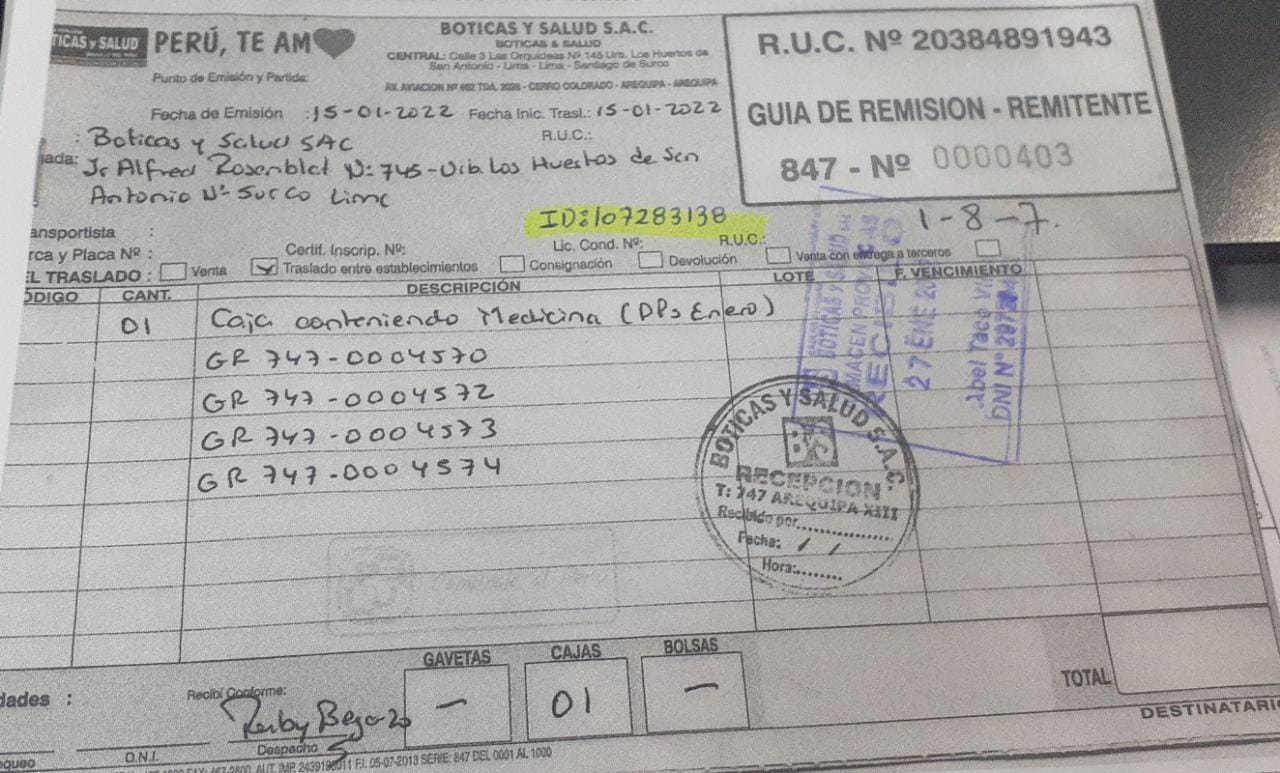 TICAS y SALUD PERÚ, TE AM
BOTICAS Y SALUD S.A.C.
BOTICAS & SALUD
CENTRAL: Calle 3 Las Orquideas Nº 145 Urb. Los Huertos de
San Antonio - Lima - Lima - Santiago de Surco
Punto de Emisión y Partida:
AV. AVIACION Nº 602 TDA. 2028 - CERRO COLORADO - AREQUIPA - AREQUIPA
R.U.C. Nº 20384891943
GUIA DE REMISION - REMITENTE
847 - Nº 0000403
Fecha de Emisión : 15-01-2022 Fecha Inic. Trasl.: 15-01-2022
: Boticas y Salud SAC R.U.C.:
ada: Jr Alfred Rosenblat Nº 745 - Urb. Los Huertos de San
Antonio Nº Surco Lima
ID: 107283138
1-8-7.
ansportista :
rca y Placa Nº : Certif. Inscrip. Nº: Lic. Cond. Nº: R.U.C.:
EL TRASLADO : Venta Traslado entre establecimientos Consignación Devolución Venta con entrega a terceros
ÓDIGO CANT. DESCRIPCIÓN LOTE F. VENCIMIENTO
01 Caja conteniendo Medicina (DPs Enero)
GR 747-0004570
GR 747-0004572
GR 747-0004573
GR 747-0004574
BOTICAS Y SALUD
RECIBIDO
27 ENE 20
Abel Taco
DNI Nº
BOTICAS Y SALUD S.A.C.
BS
RECEPCION
T: 747 AREQUIPA XIII
Recibido por
Fecha: / /
Hora:
GAVETAS CAJAS BOLSAS
— 01 —
TOTAL
dades :
Recibí Conforme:
DESTINATARIO
queo D.N.I. Despacho
AUT. IMP. F.I. 05-07-2013 SERIE: 847 DEL 0001 AL 1000